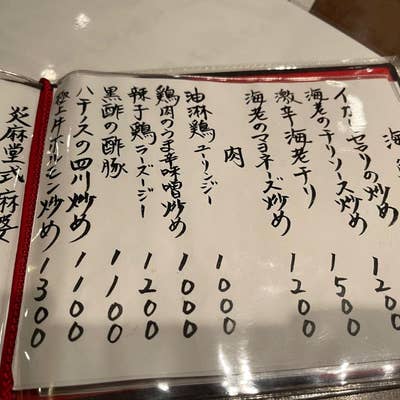 海
イカ セロリの炒め
海老のチリソース炒め 1200
激辛 海老チリ 1500
海老のマヨネーズ炒め 1200
肉
油淋鶏 ユーリンジー 1000
鶏肉のうま辛味噌炒め 1000
辣子鶏 ラーズージー 1200
黒酢の酢豚 1100
ハチノスの四川炒め 1100
極上牛ホルモン炒め 1300
炎麻堂式麻婆